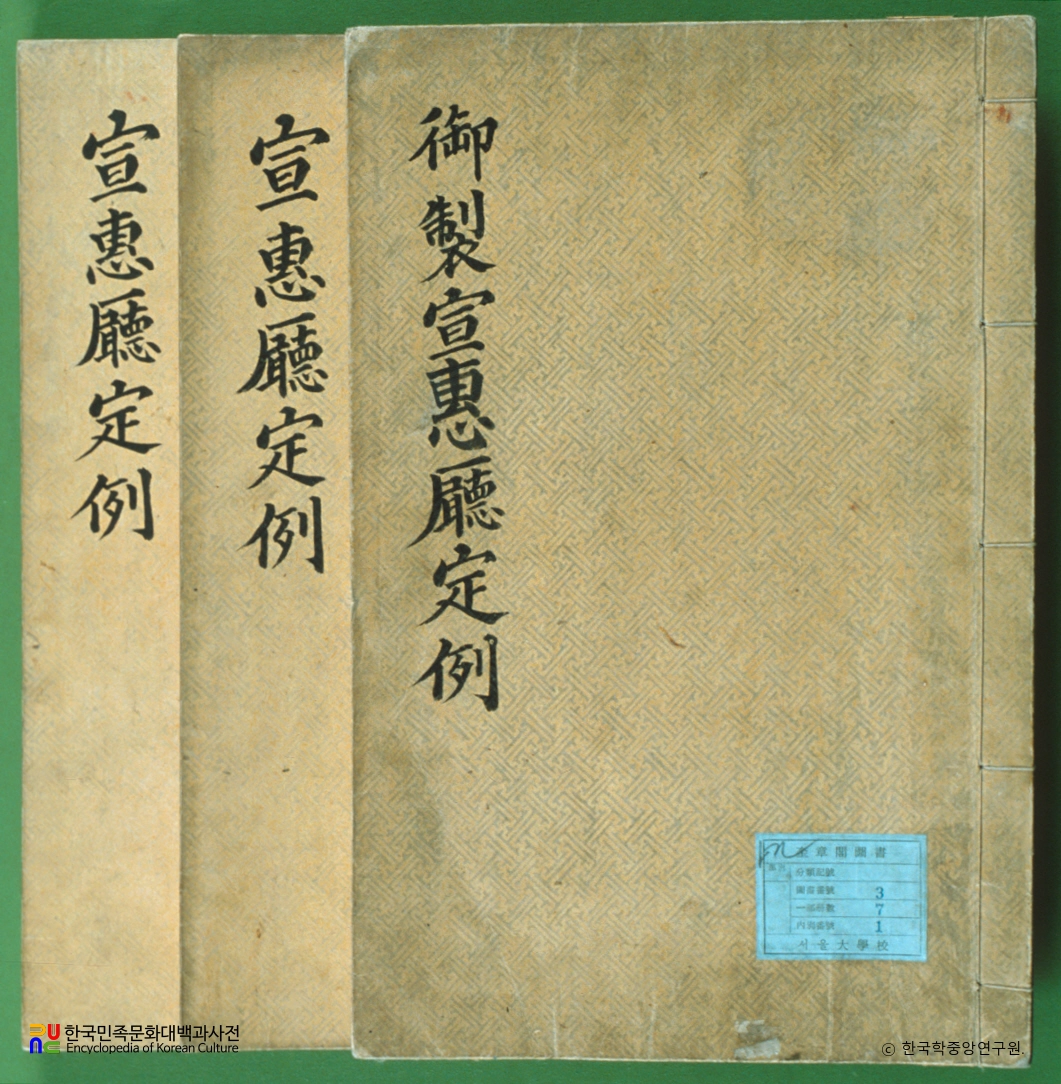 御製宣惠廳定例
宣惠廳定例
宣惠廳定例
奎章閣圖書
分類記號
圖書番號 3
一部冊數 7
內冊番號 1
서울大學校
한국민족문화대백과사전
Encyclopedia of Korean Culture
ⓒ 한국학중앙연구원.